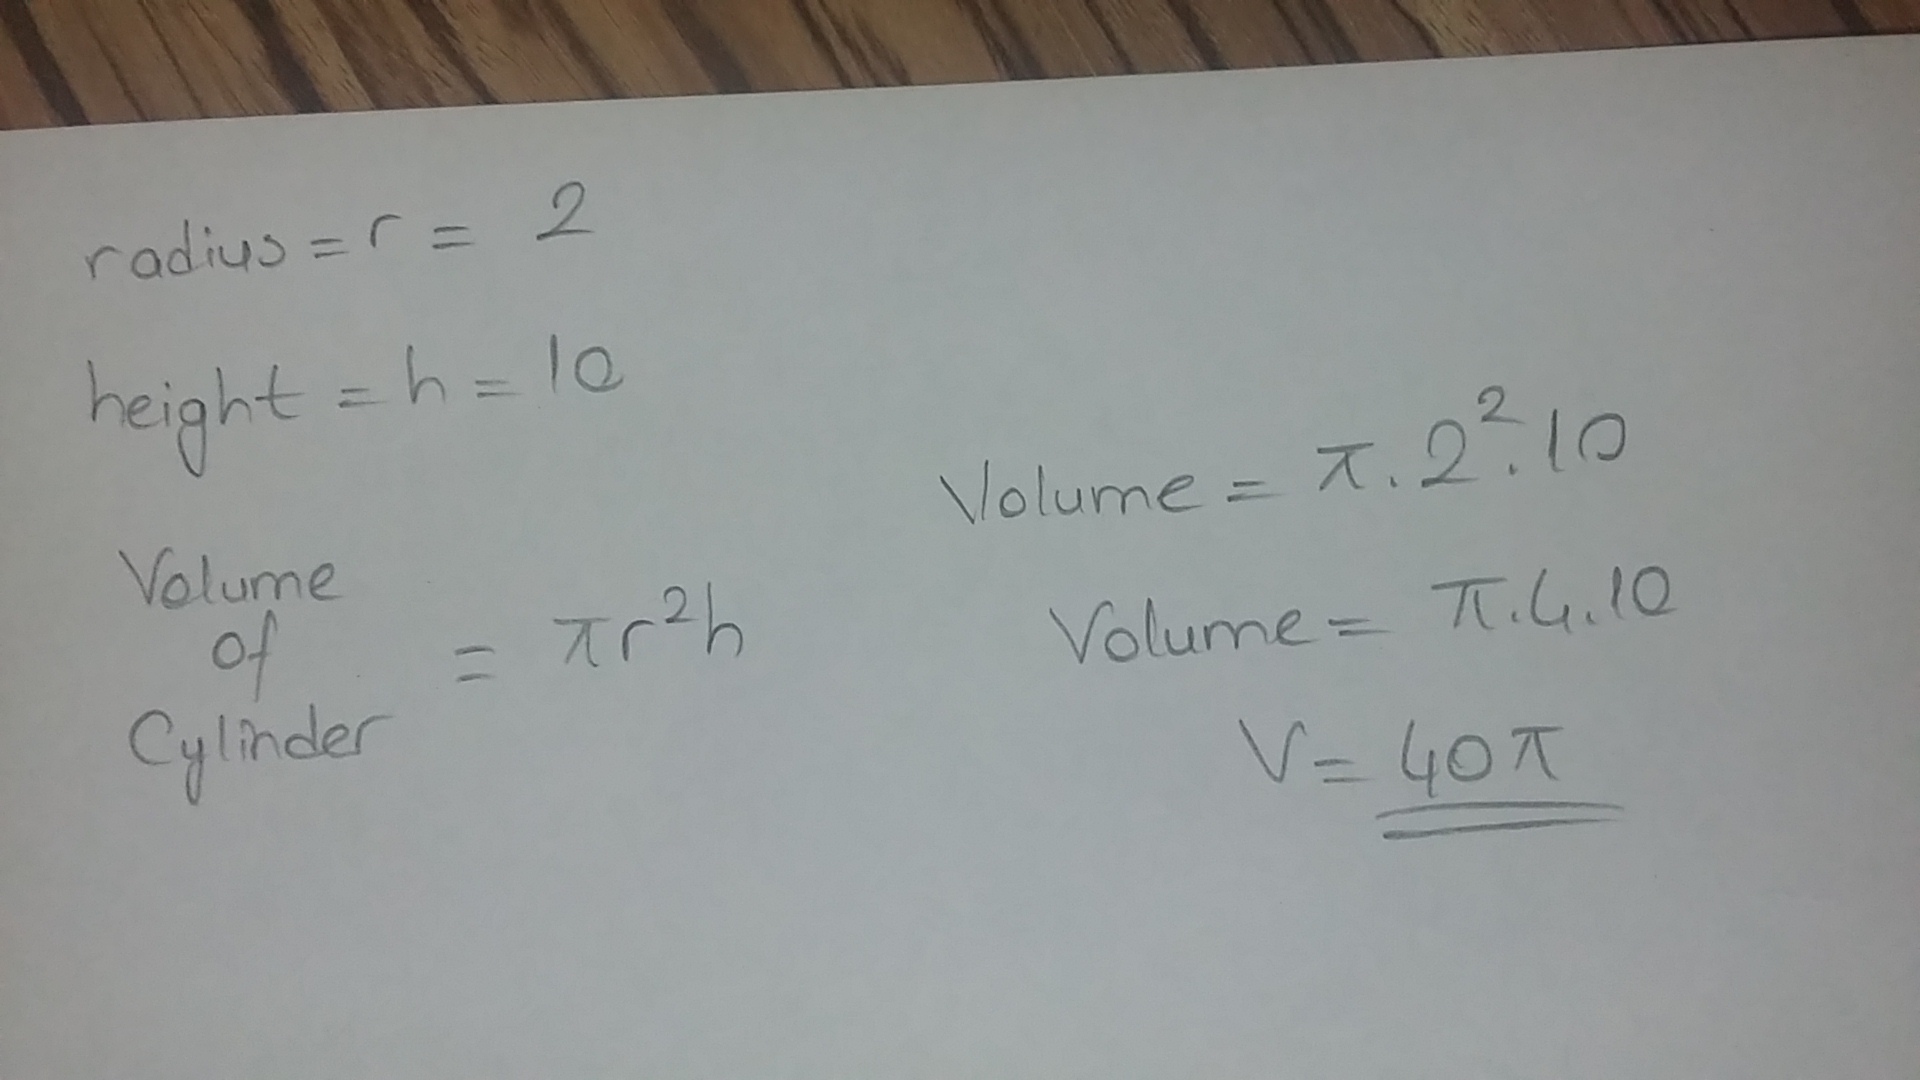 radius = r = 2
height = h = 10
Volume
of
Cylinder
= πr²h
Volume = π.2².10
Volume = π.4.10
V = 40π